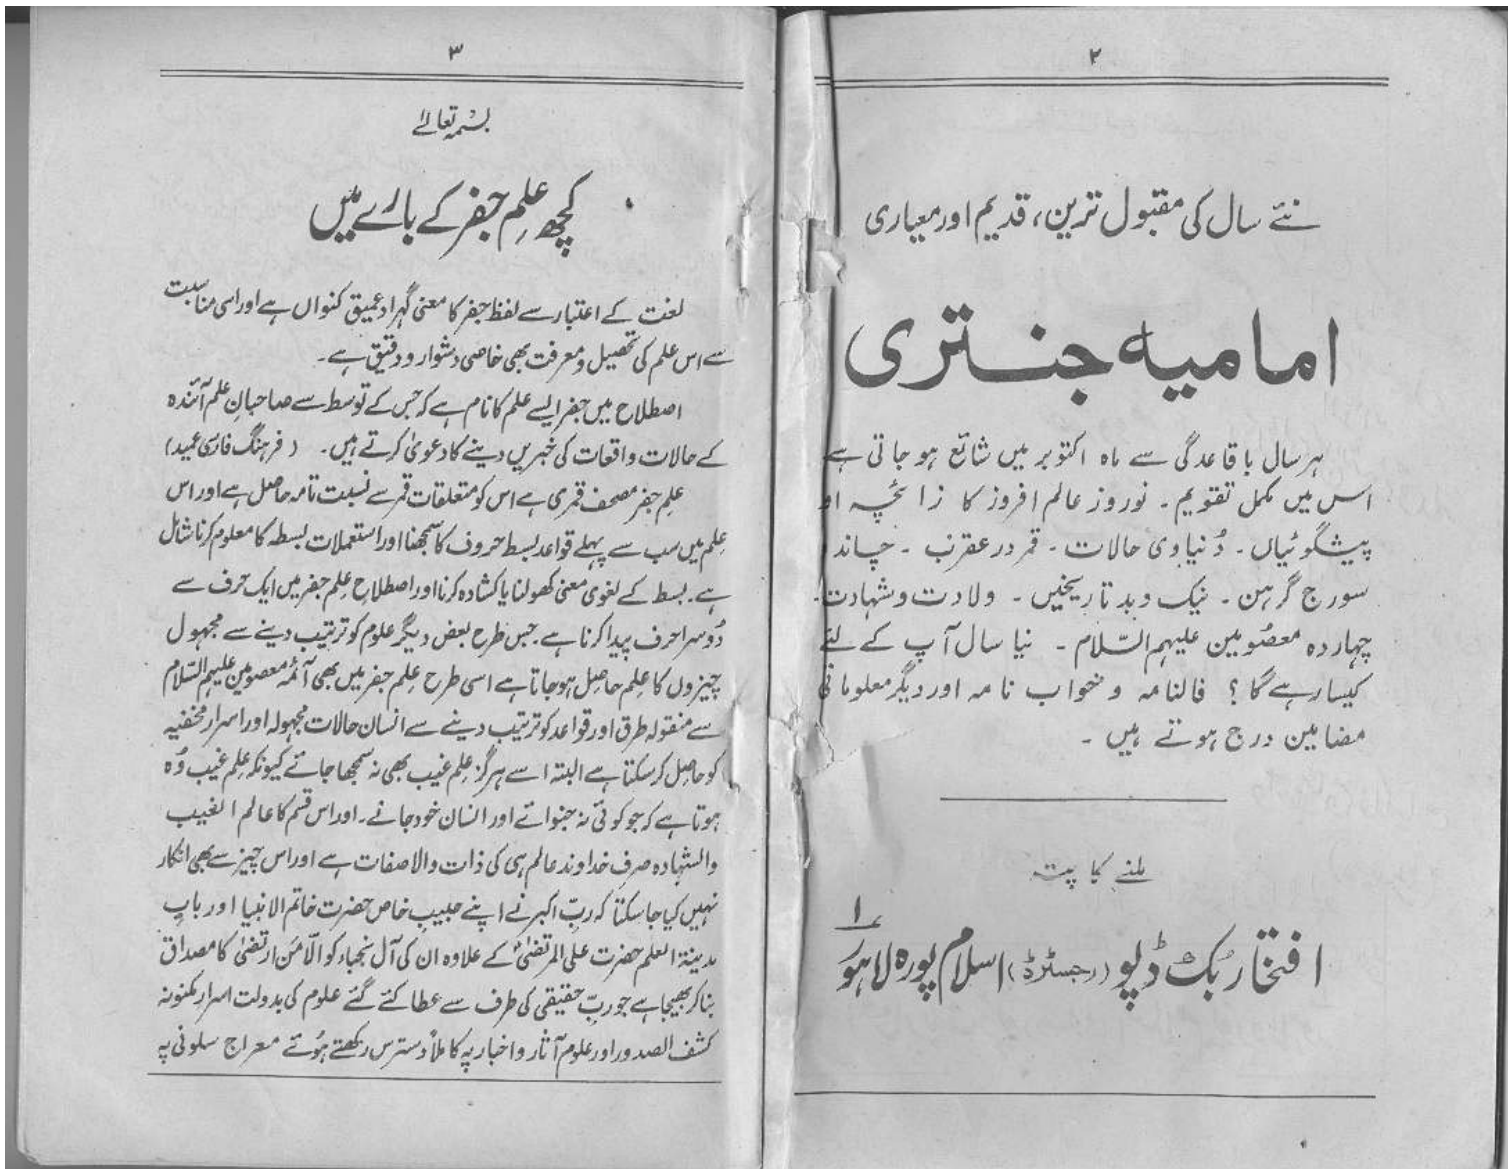 ۲
نئے سال کی مقبول ترین، قدیم اور معیاری
امامیہ جنتری
ہر سال باقاعدگی سے ماہ اکتوبر میں شائع ہو جاتی ہے
اس میں مکمل تقویم۔ نوروز عالم افروز کا زائچہ او
پیشگوئیاں۔ دُنیاوی حالات۔ قمر در عقرب۔ چاند
سورج گرہن۔ نیک و بد تاریخیں۔ ولادت و شہادت
چہاردہ معصُومین علیہم السّلام۔ نیا سال آپ کے لئے
کیسا رہے گا؟ فالنامہ و خواب نامہ اور دیگر معلوماتی
مضامین درج ہوتے ہیں۔
ملنے کا پتہ
افتخار بُک ڈپو (رجسٹرڈ) اسلام پورہ لاہور ۱
۳
بسمہ تعالےٰ
کچھ علِم جفر کے بارے میں
لغت کے اعتبار سے لفظ جفر کا معنی گہرا و عمیق کنواں ہے اور اسی مناسبت
سے اس علم کی تحصیل و معرفت بھی خاصی دشوار و دقیق ہے۔
اصطلاح میں جفر ایسے علم کا نام ہے کہ جس کے توسط سے صاحبانِ علم آئندہ
کے حالات واقعات کی خبریں دینے کا دعویٰ کرتے ہیں۔ (فرہنگ فارسی عمید)
علِم جفر مصحف قمری ہے اس کو متعلقات قمر سے نسبت تامہ حاصل ہے اور اس
علِم میں سب سے پہلے قواعد بسط حروف کا سمجھنا اور استعملات بسطہ کا معلوم کرنا شامل
ہے۔ بسط کے لغوی معنی کھولنا یا کشادہ کرنا اور اصطلاحِ علِم جفر میں ایک حرف سے
دُوسرا حرف پیدا کرنا ہے۔ جس طرح بعض دیگر علوم کو ترتیب دینے سے مجہول
چیزوں کا علِم حاصِل ہو جاتا ہے اسی طرح علِم جفر میں بھی آئمہ معصومین علیہم السّلام
سے منقولہ طرق اور قواعد کو ترتیب دینے سے انسان حالات مجہولہ اور اسرار مخفیہ
کو حاصِل کر سکتا ہے البتہ اسے ہرگز علِم غیب بھی نہ سمجھا جائے کیونکہ علِم غیب وُہ
ہوتا ہے کہ جو کوئی نہ جنوائے اور انسان خود جانے۔ اور اس قسم کا عالم الغیب
والشہادہ صرف خداوند عالم ہی کی ذات والا صفات ہے اور اس چیز سے بھی انکار
نہیں کیا جا سکتا کہ ربِّ اکبر نے اپنے حبیبِ خاص حضرت خاتم الانبیا اور بابِ
مدینۃ العلم حضرت علی المرتضیٰؑ کے علاوہ ان کی آل نجباء کو الّا من ارتضیٰ کا مصداق
بنا کر بھیجا ہے جو ربِّ حقیقی کی طرف سے عطا کئے گئے علوم کی بدولت اسرار مکنونہ
کشف الصدور اور علوم آثار و اخبار پہ کاملاً دسترس رکھتے ہوُئے معراج سلونی پہ